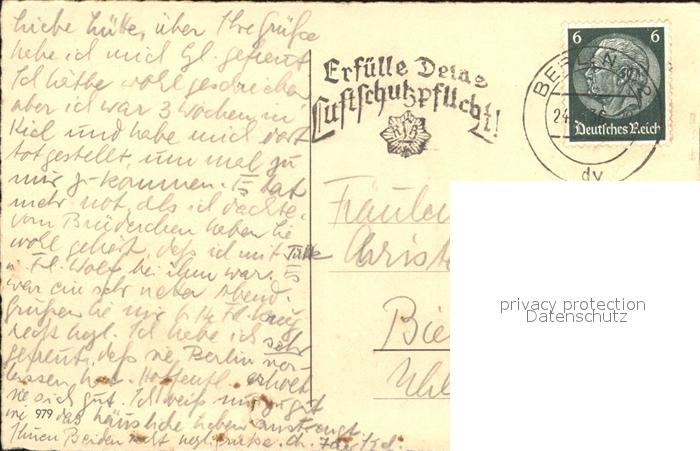 Liebe Hütte, über Ihre Grüße
habe ich mich gefreut
Ich hätte wohl geschrieben
aber ich war 3 Wochen in
Kiel und habe mich dort
totgestellt, um mal zu
mir z. kommen. Es tat
mehr not, als ich dachte.
vom Brüderchen haben Sie
wohl gehört, daß ich mit
Frl. Wolf bei ihm war. Es
war ein sehr netter Abend.
grüßen Sie mir Frl.
recht hgl. Ich habe ich sehr
gefreut, daß sie Berlin ver-
lassen hat. Hoffentl. erholt
sie sich gut. Ich weiß nur zu gut
wie das häusliche Leben anstrengt
Ihnen Beiden recht hgl. Grüße.
979
Erfülle Deine
Luftschutzpflicht!
RLB
BERLIN
24
dv
6 6
Deutsches Reich
Fräulein
Christ
Bie
privacy protection
Datenschutz